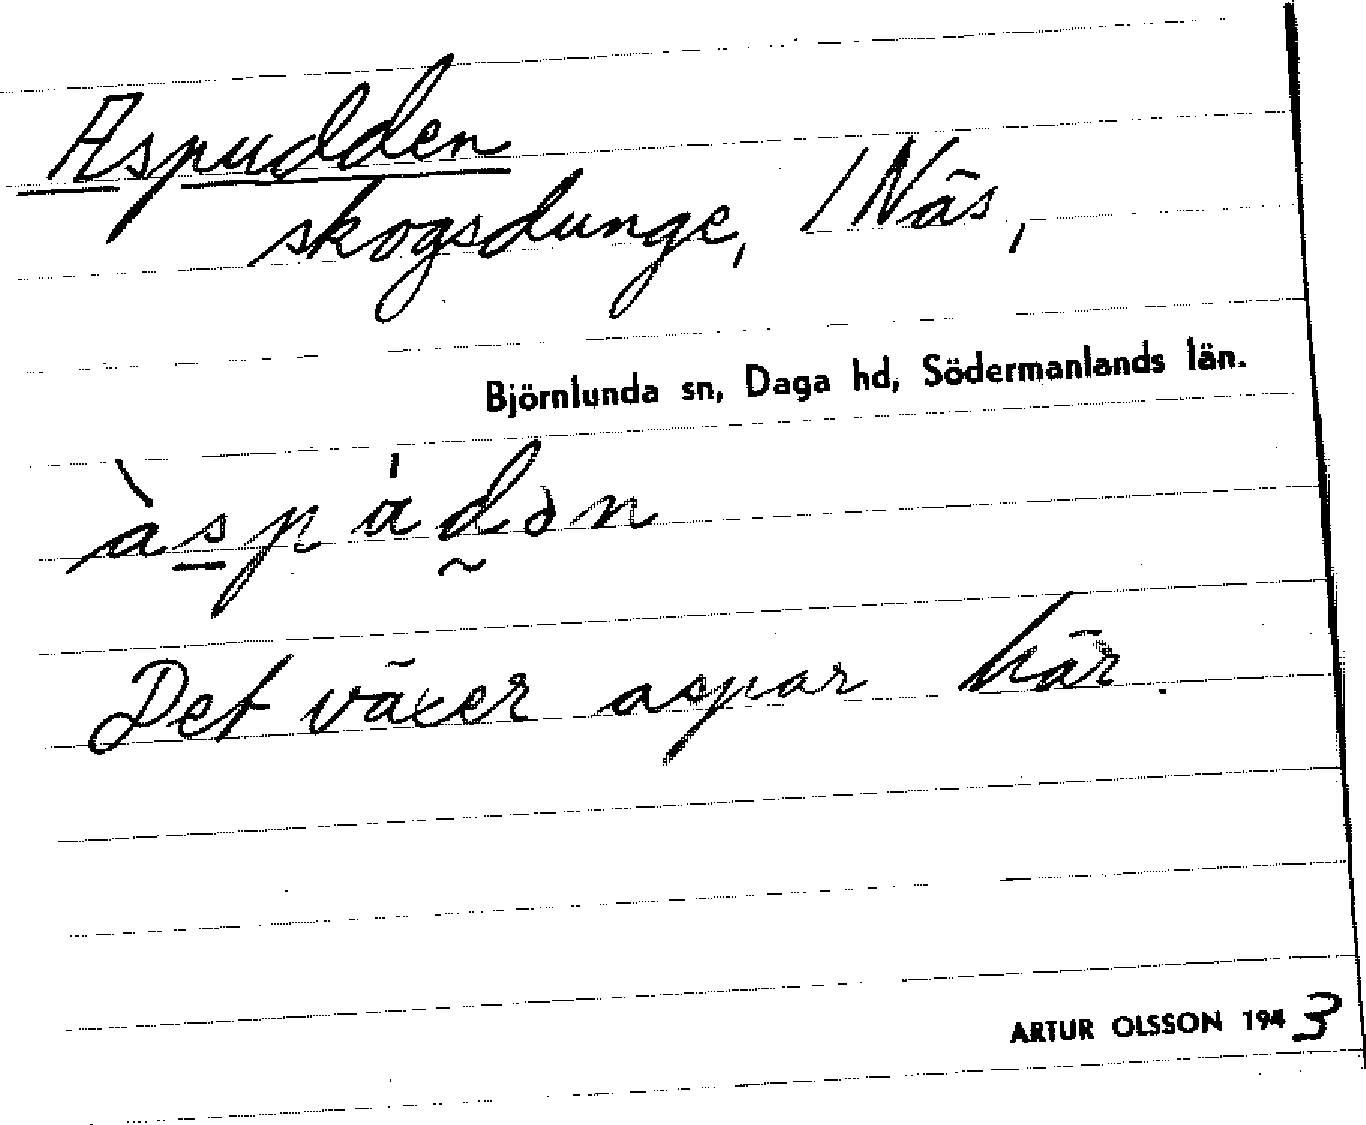 Aspudden
skogsdunge, / Näs,
Björnlunda sn, Daga hd, Södermanlands län.
àspádən
Det växer aspar här.
ARTUR OLSSON 1943